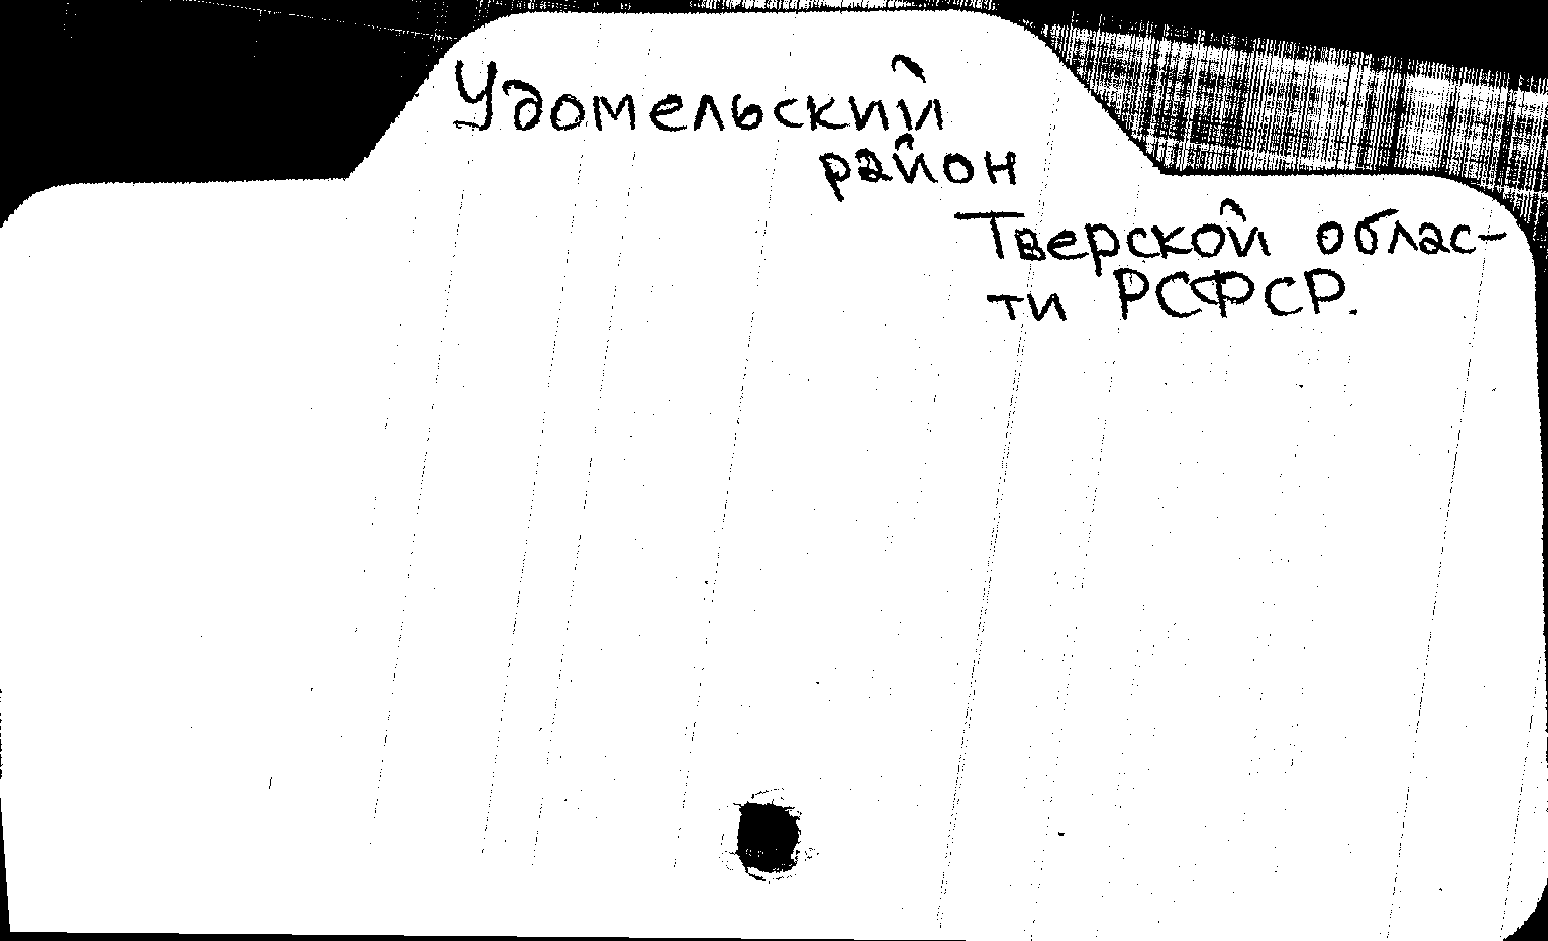 Удомельский
район
Тверской облас-
ти РСФСР.